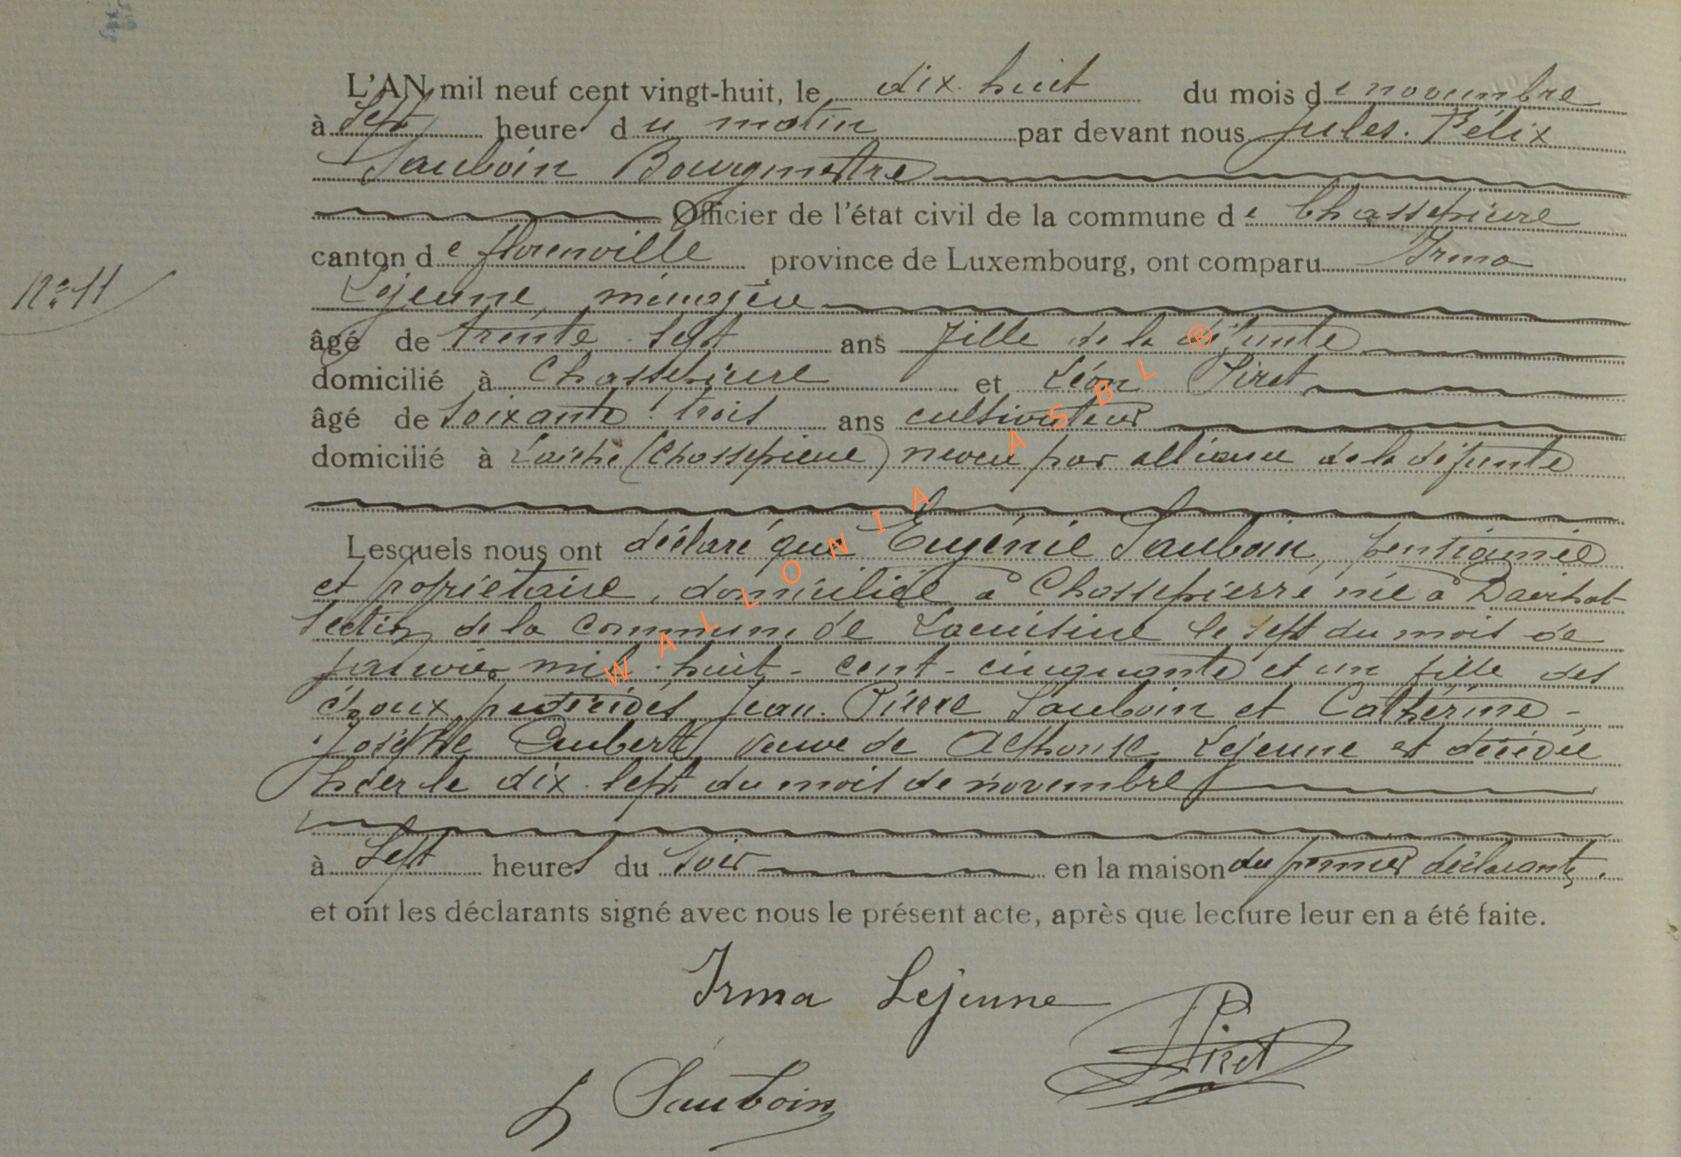 L'AN mil neuf cent vingt-huit, le dix huit du mois de novembre
à sept heures du matin par devant nous Jules. Félix
Sauboin Bourgmestre
Officier de l'état civil de la commune de Chassepierre
canton de florenville province de Luxembourg, ont comparu Irma
N° 11
Lejeune, ménagère
âgé de trente-sept ans fille de la défunte
domicilié à Chassepierre et Léon Piret
âgé de soixante-trois ans cultivateur
domicilié à Laiche (Chassepierre) neveu par alliance de la défunte
Lesquels nous ont déclaré que Eugénie Sauboin, pensionnée
et propriétaire, domiciliée à Chassepierre née à
section de la commune de Lacuisine le sept du mois de
janvier mil-huit-cent-cinquante et un fille des
époux Jean-Pierre Sauboin et Catherine-
Josèphe Aubert, veuve de Alphonse Lejeune est décédée
hier le dix-sept du mois de novembre
à sept heures du soir en la maison du premier déclarant.
et ont les déclarants signé avec nous le présent acte, après que lecture leur en a été faite.
Irma Lejeune
Piret
J Sauboin
WALLONIA ASBL ®